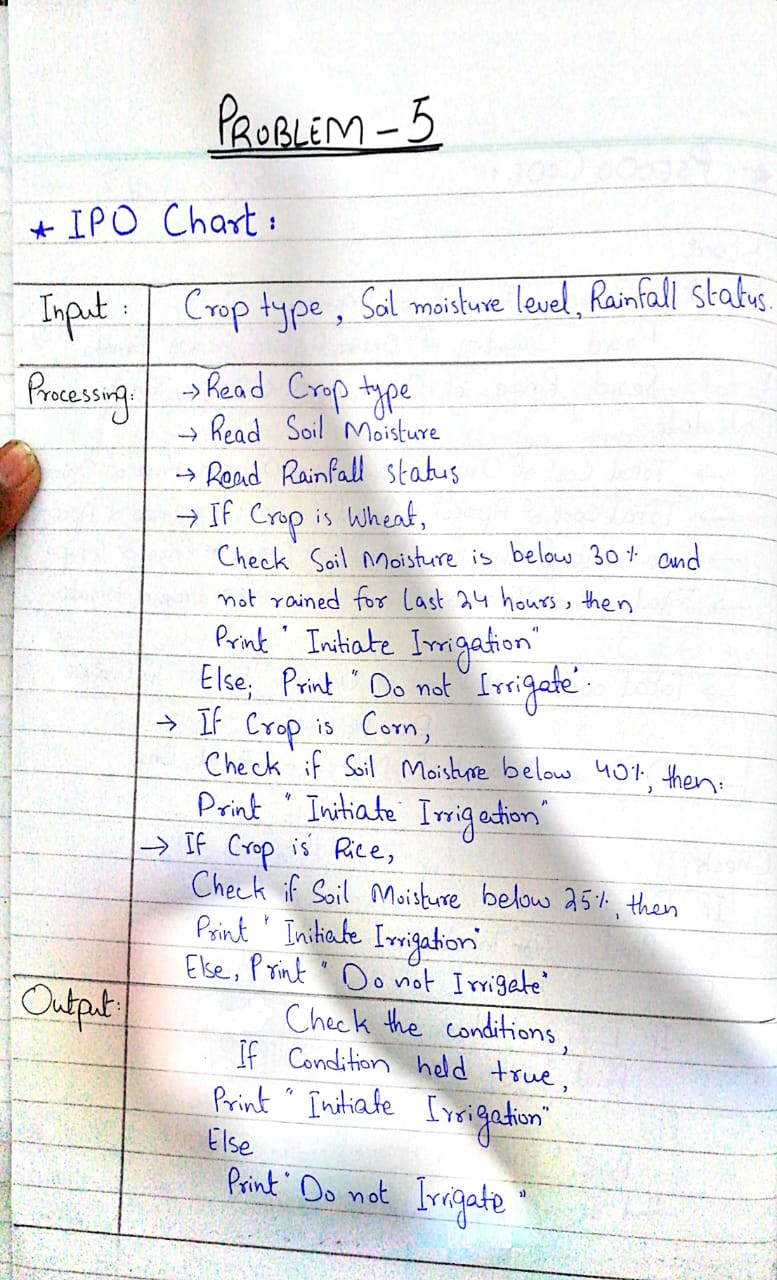 PROBLEM - 5
* IPO Chart :
Input : Crop type, Soil moisture level, Rainfall Status.
Processing: → Read Crop type
→ Read Soil Moisture
→ Read Rainfall status
→ If Crop is Wheat,
Check Soil Moisture is below 30% and
not rained for last 24 hours, then
Print "Initiate Irrigation"
Else; Print "Do not Irrigate".
→ If Crop is Corn,
Check if Soil Moisture below 40%, then:
Print "Initiate Irrigation"
→ If Crop is Rice,
Check if Soil Moisture below 25%, then
Print "Initiate Irrigation"
Else, Print "Do not Irrigate"
Output: Check the conditions,
If Condition held true,
Print "Initiate Irrigation"
Else
Print "Do not Irrigate"